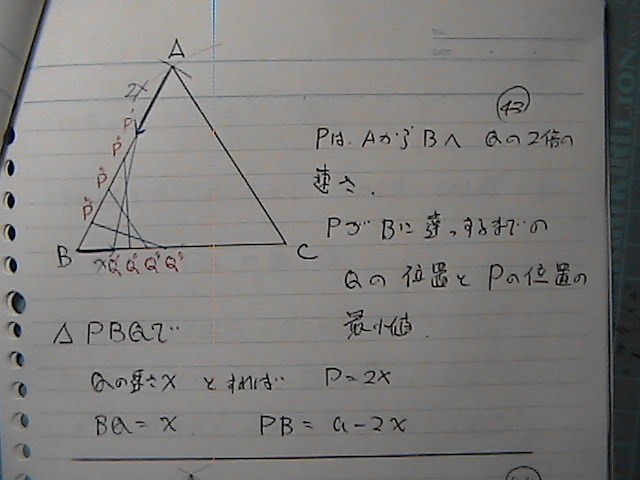 43
A
2x
P'
P''
P'''
P''''
B
x
Q'
Q''
Q'''
Q''''
C
Pは、AからBへ Qの2倍の
速さ.
PがBに達っするまでの
Qの位置とPの位置の
最小値.
△PBQで
Qの長さx とすれば P=2x
BQ=x PB=a-2x
No.
DATE